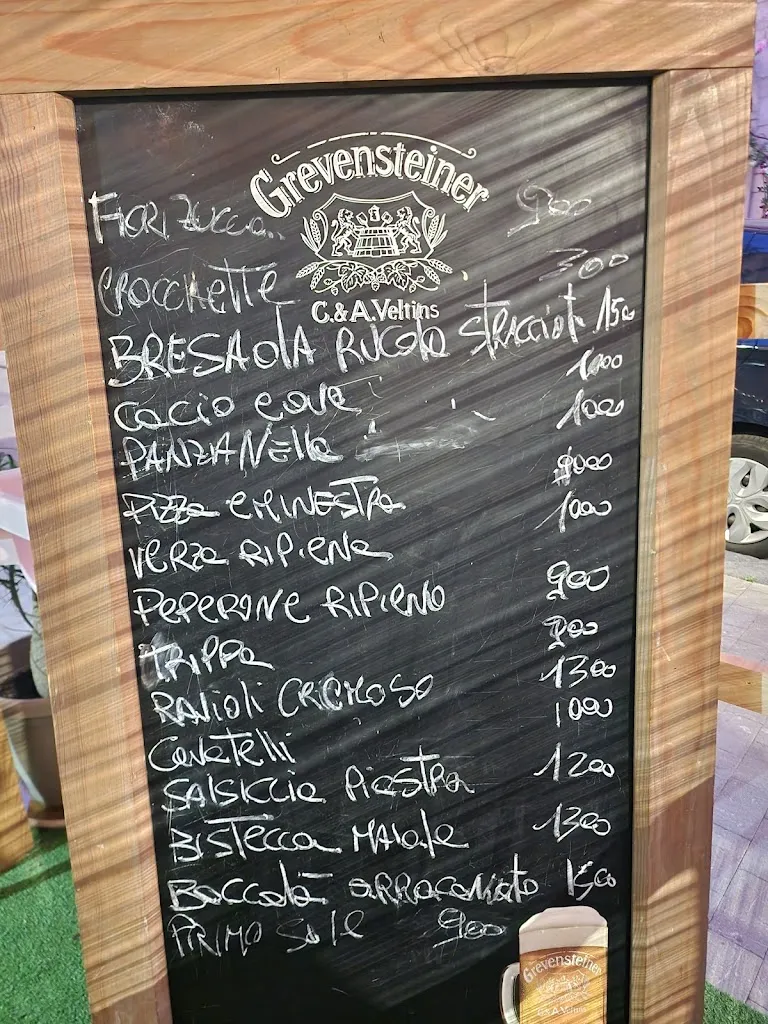 Grevensteiner
FIORI ZUCCA 900
CROCCHETTE 300
C. & A. Veltins
BRESAOLA RUCOLA STRACCIAT 1500
CACIO e OVE 1000
PANZANELLA 1000
PIZZA E MINESTRA 9000
VERZA RIPIENA 1000
PEPERONE RIPIENO 900
TRIPPA 900
RAVIOLI CREMOSO 1300
CAVATELLI 1000
SALSICCIA PIASTRA 1200
BISTECCA MAIALE 1300
BACCALÀ ARRACANATO 1500
PRIMO SALE 900
Grevensteiner
C. & A. Veltins